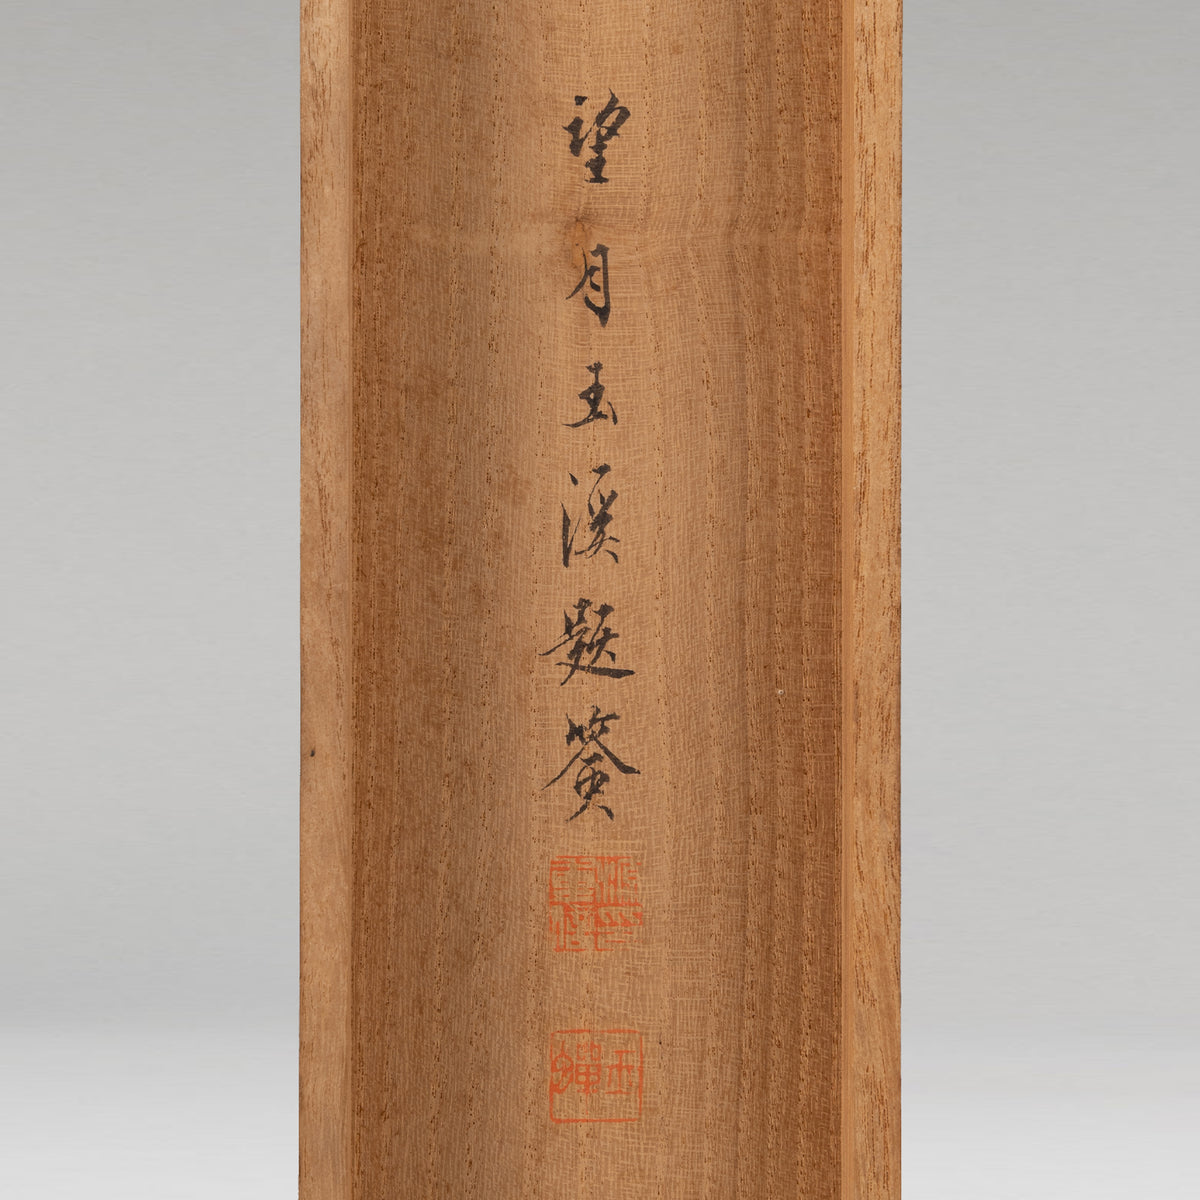 望月玉渓題簽